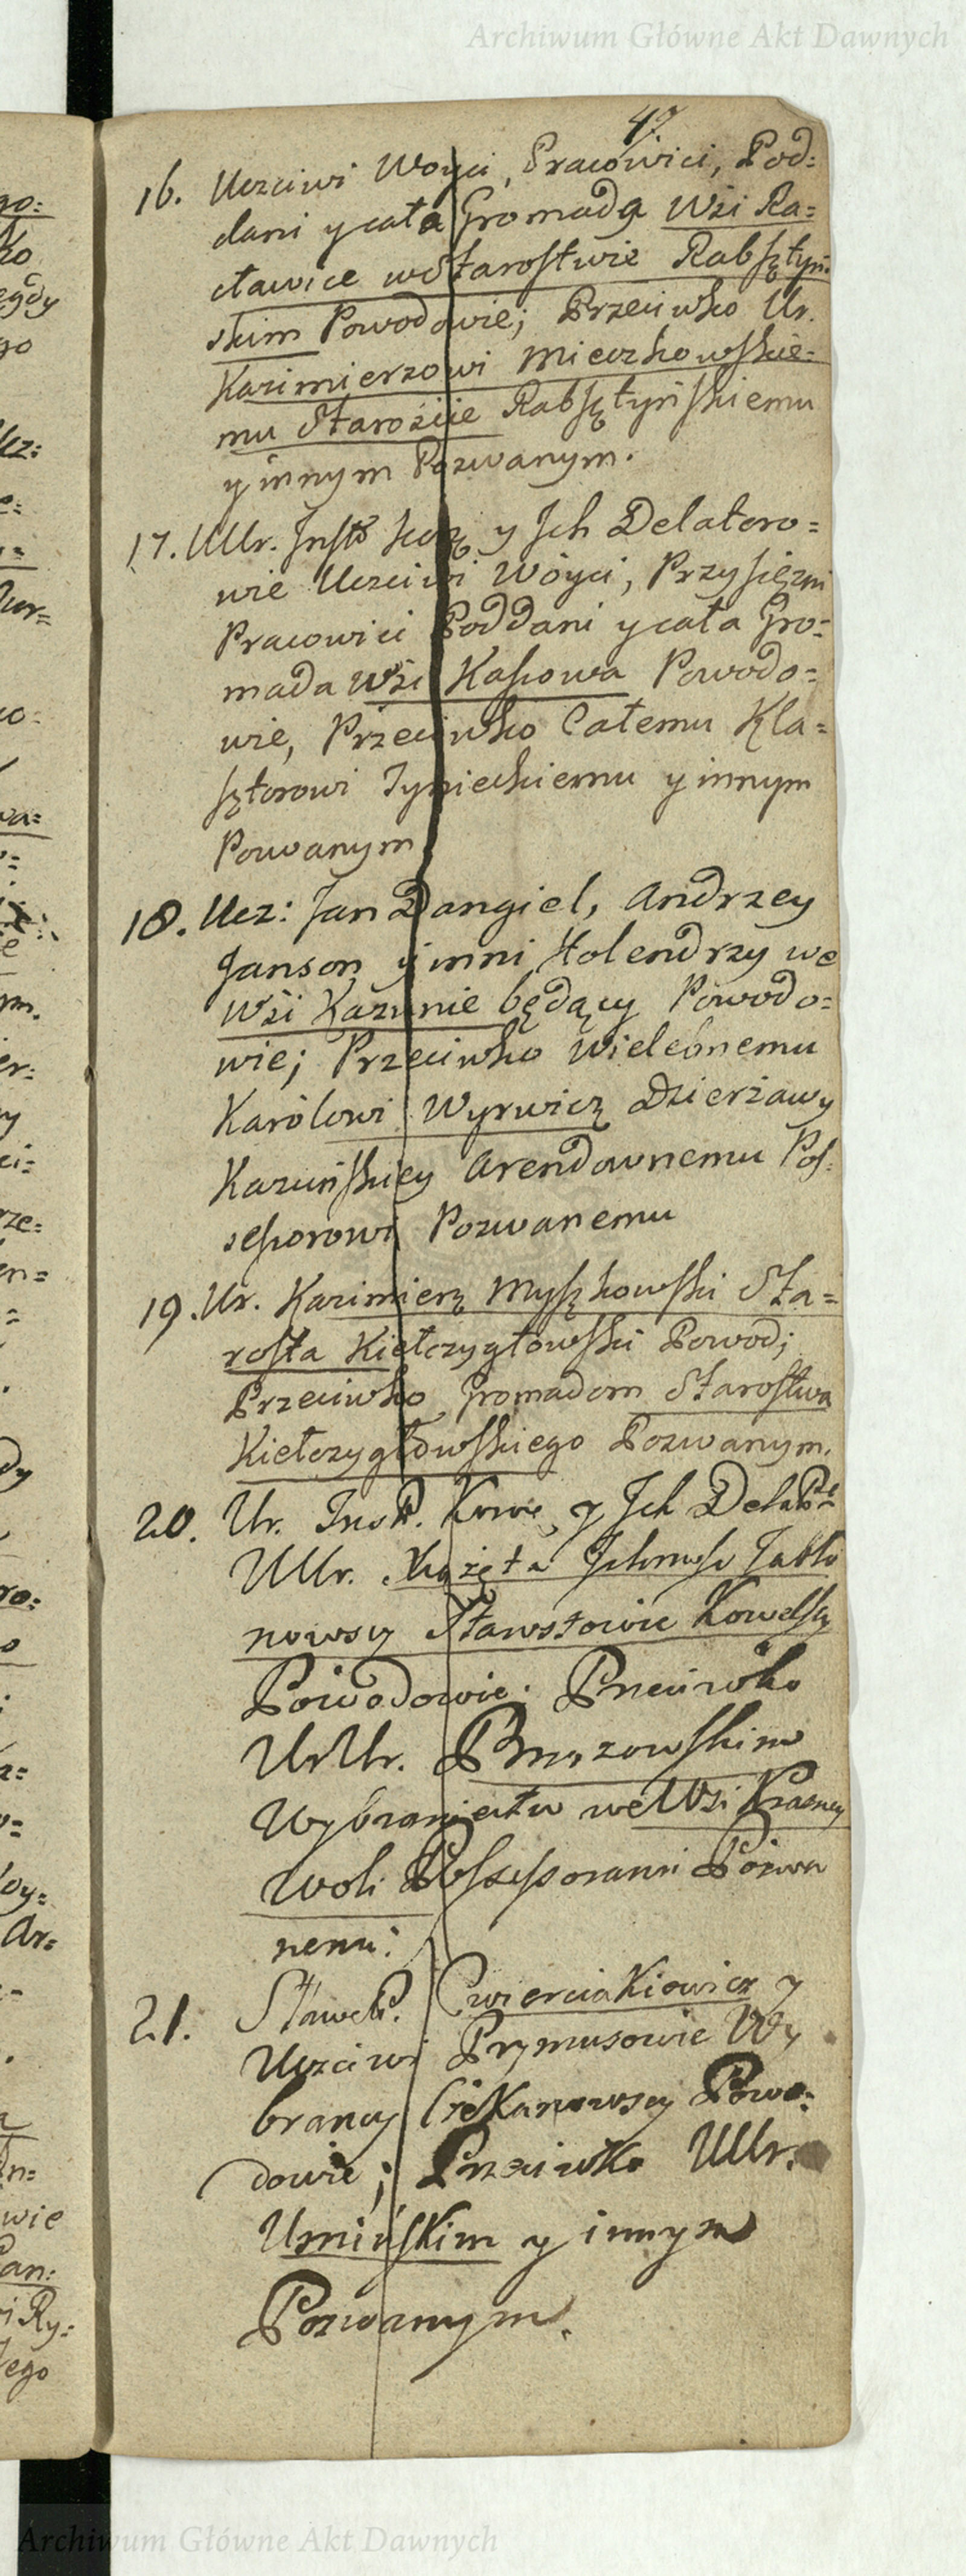 Archiwum Główne Akt Dawnych
47.
16. Uczciwi Woyci, Pracowici, Pod=
dani y cała Gromada Wsi Ra=
cławice w Starostwie Rabsztyń=
skim Powodowie; Przeciwko Ur.
Kazimierzowi Mieczkowskie=
mu Staroście Rabsztyńskiemu
y innym Pozwanym.
17. UUr. Inst y Ich Delatoro=
wie Uczciwi Wóyci, Przysiężni
Pracowici Poddani y cała Gro=
mada Wsi Kaszowa Powodo=
wie, Przeciwko Całemu Kla=
sztorowi Tynieckiemu y innym
Pozwanym
18. Ucz: Jan Dangiel, Andrzey
Janson y inni Holendrzy we
Wsi Kazunie będący Powodo=
wie; Przeciwko Wielebnemu
Karolowi Wyrwicz Dzierżawy
Kazuńskiey Arendownemu Pos=
sessorowi Pozwanemu
19. Ur. Kazimierz Myszkowski Sta=
rosta Kiełczygłowski Powod;
Przeciwko Gromadom Starostwa
Kiełczygłowskiego Pozwanym.
20. Ur. Inst. y Ich Delat
UUr. Xiążęta Jabło
nowscy Starostowie Kowelscy
Powodowie; Przeciwko
UrUr. Brzozowskim
Wybraniectw we Wsi Krasney
Woli Possessorami Pozwa
nemi:
21. Sławet. Cwierciakiewicz y
Uczciwi Prymusowie Wy
brancy Powo=
dowie; Przeciwko UUr.
Umińskim y innym
Pozwanym.
Archiwum Główne Akt Dawnych